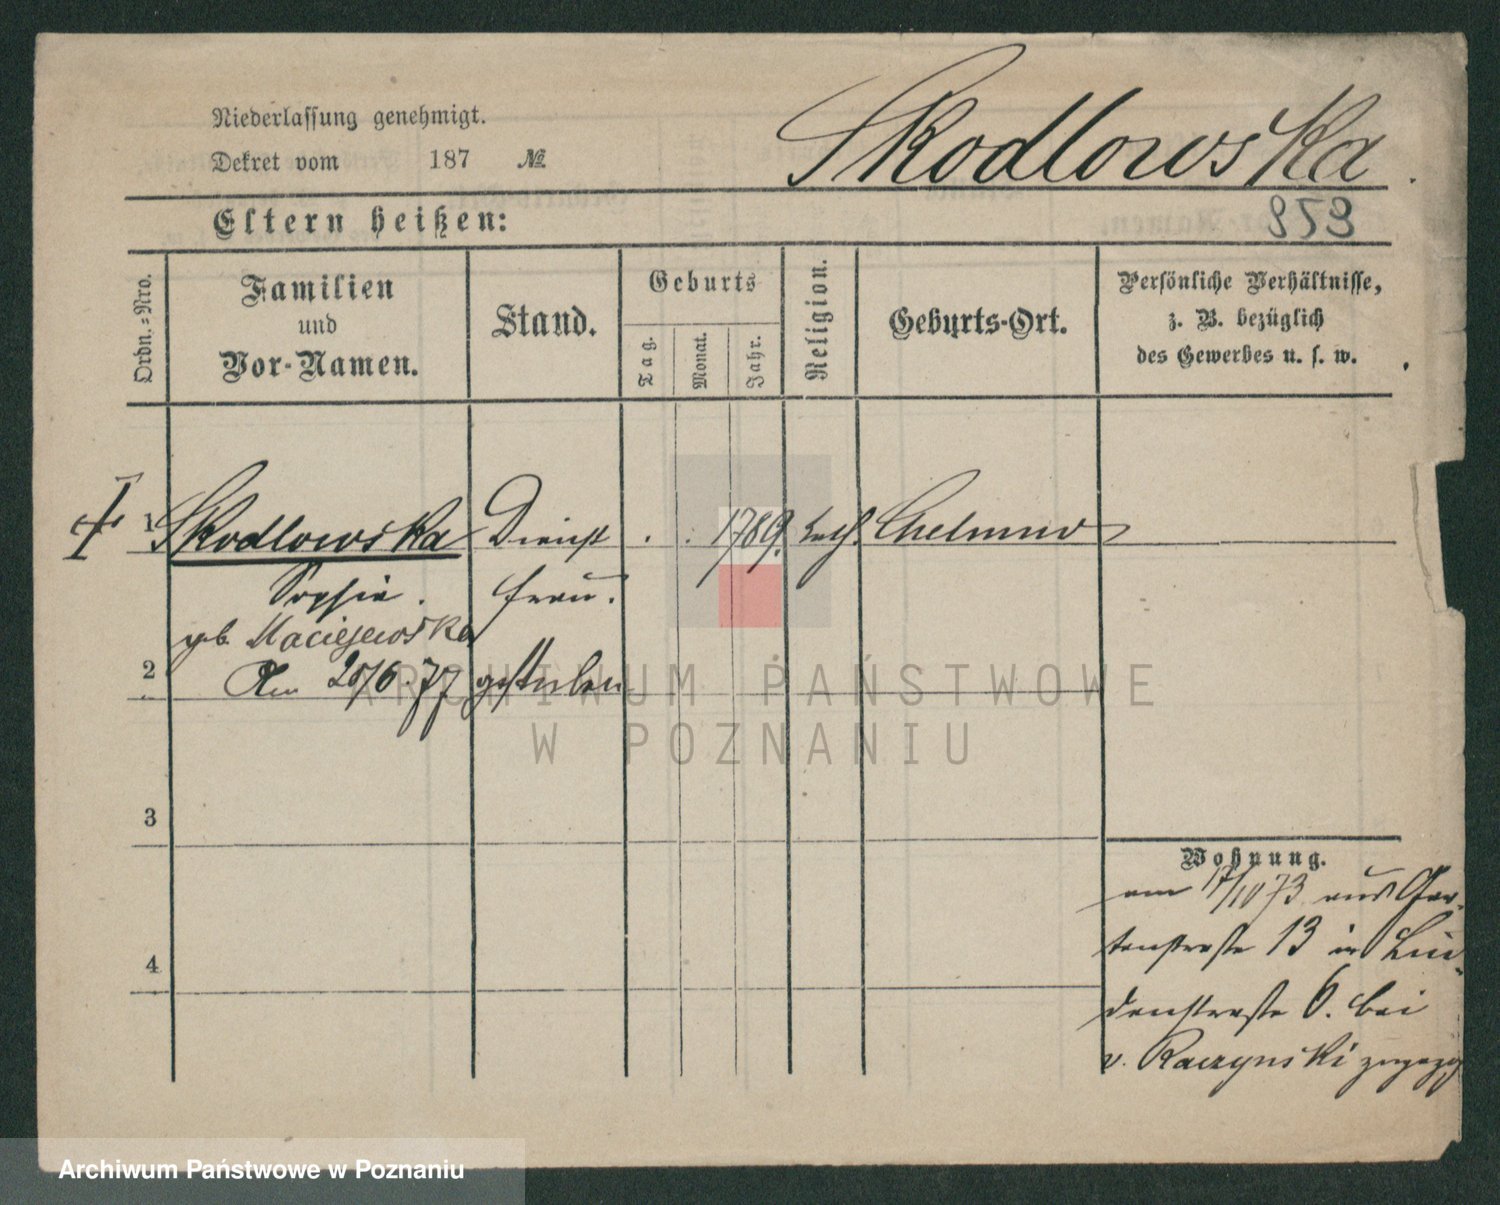 Niederlassung genehmigt.
Dekret vom 187 №
Skodlowska
853
Eltern heißen:
Ordn.-Nro.
Familien
und
Vor-Namen.
Stand.
Geburts
Tag.
Monat.
Jahr.
Religion.
Geburts-Ort.
Persönliche Verhältnisse,
z. B. bezüglich
des Gewerbes u. s. w.
1 Skodlowska Dienst 1789. kath. Chelmno
Sophie. frau.
geb. Maciejewska
2 Am 20/6. 77 gestorben
3
4
Wohnung.
am 17/10 73 aus Gar-
tenstraße 13 in Lin-
denstraße 6. bei
v. Raczynski zugezog
ARCHIWUM PAŃSTWOWE
W POZNANIU
Archiwum Państwowe w Poznaniu